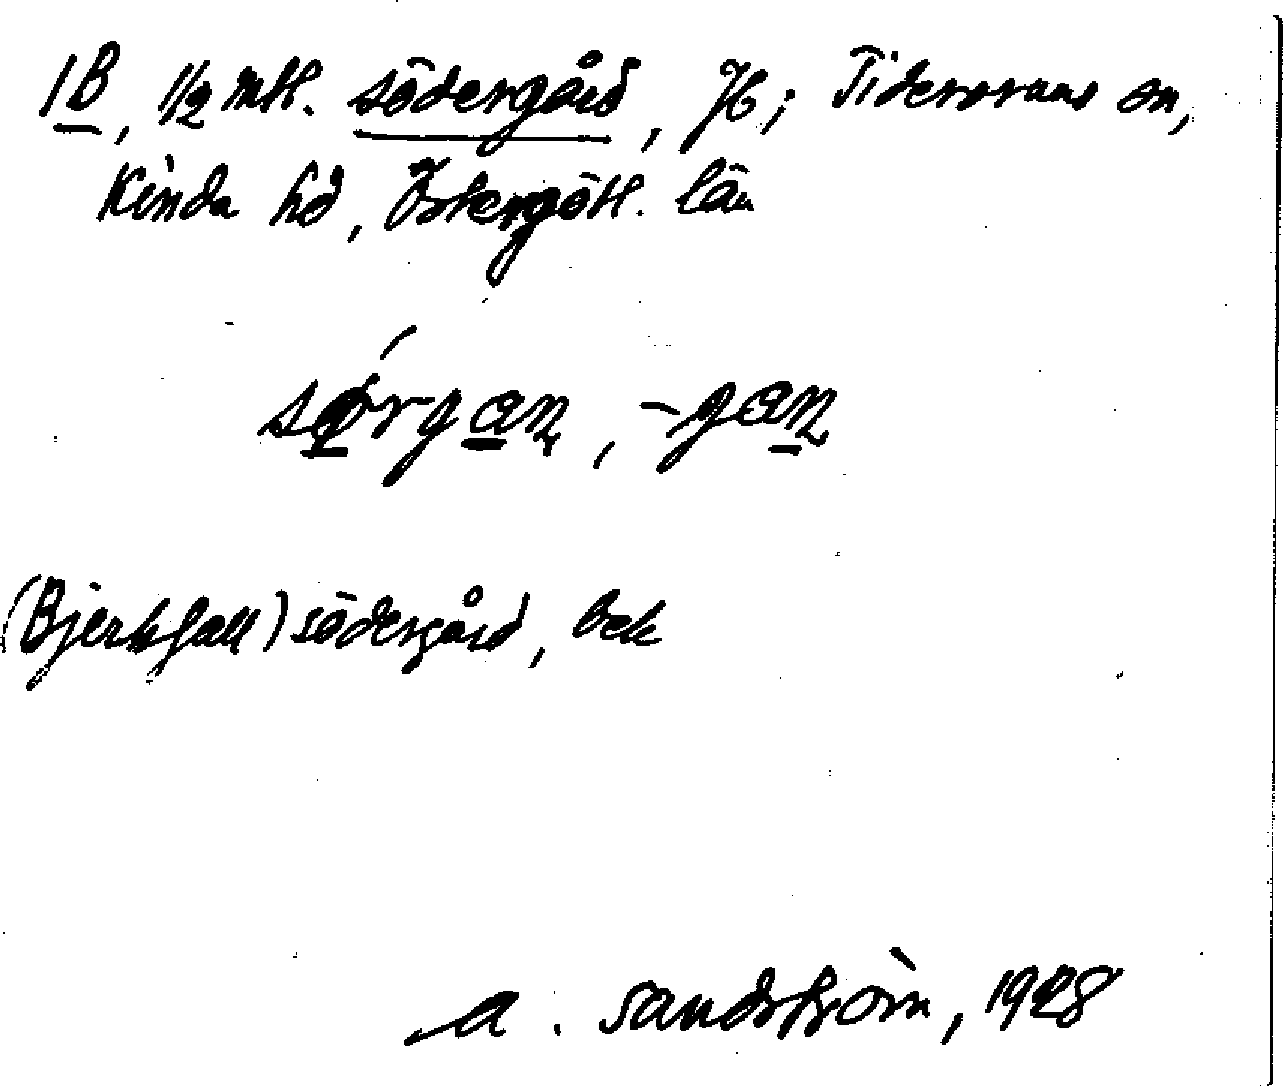 1B, 1/2 mtl. södergård, JC; Tidersrums sn,
Kinda hd, Östergötl. län
sǿrgan, -gan
(Bjerkfall) södergård, bek
A. Sandström, 1928